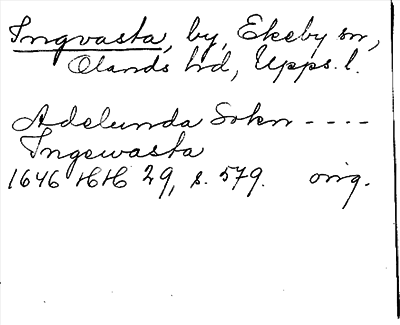 Ingvasta, by, Ekeby sn,
Olands hd, Upps. l.
Adelunda Sokn ----
Ingewasta
1646 HH 29, s. 579. orig.